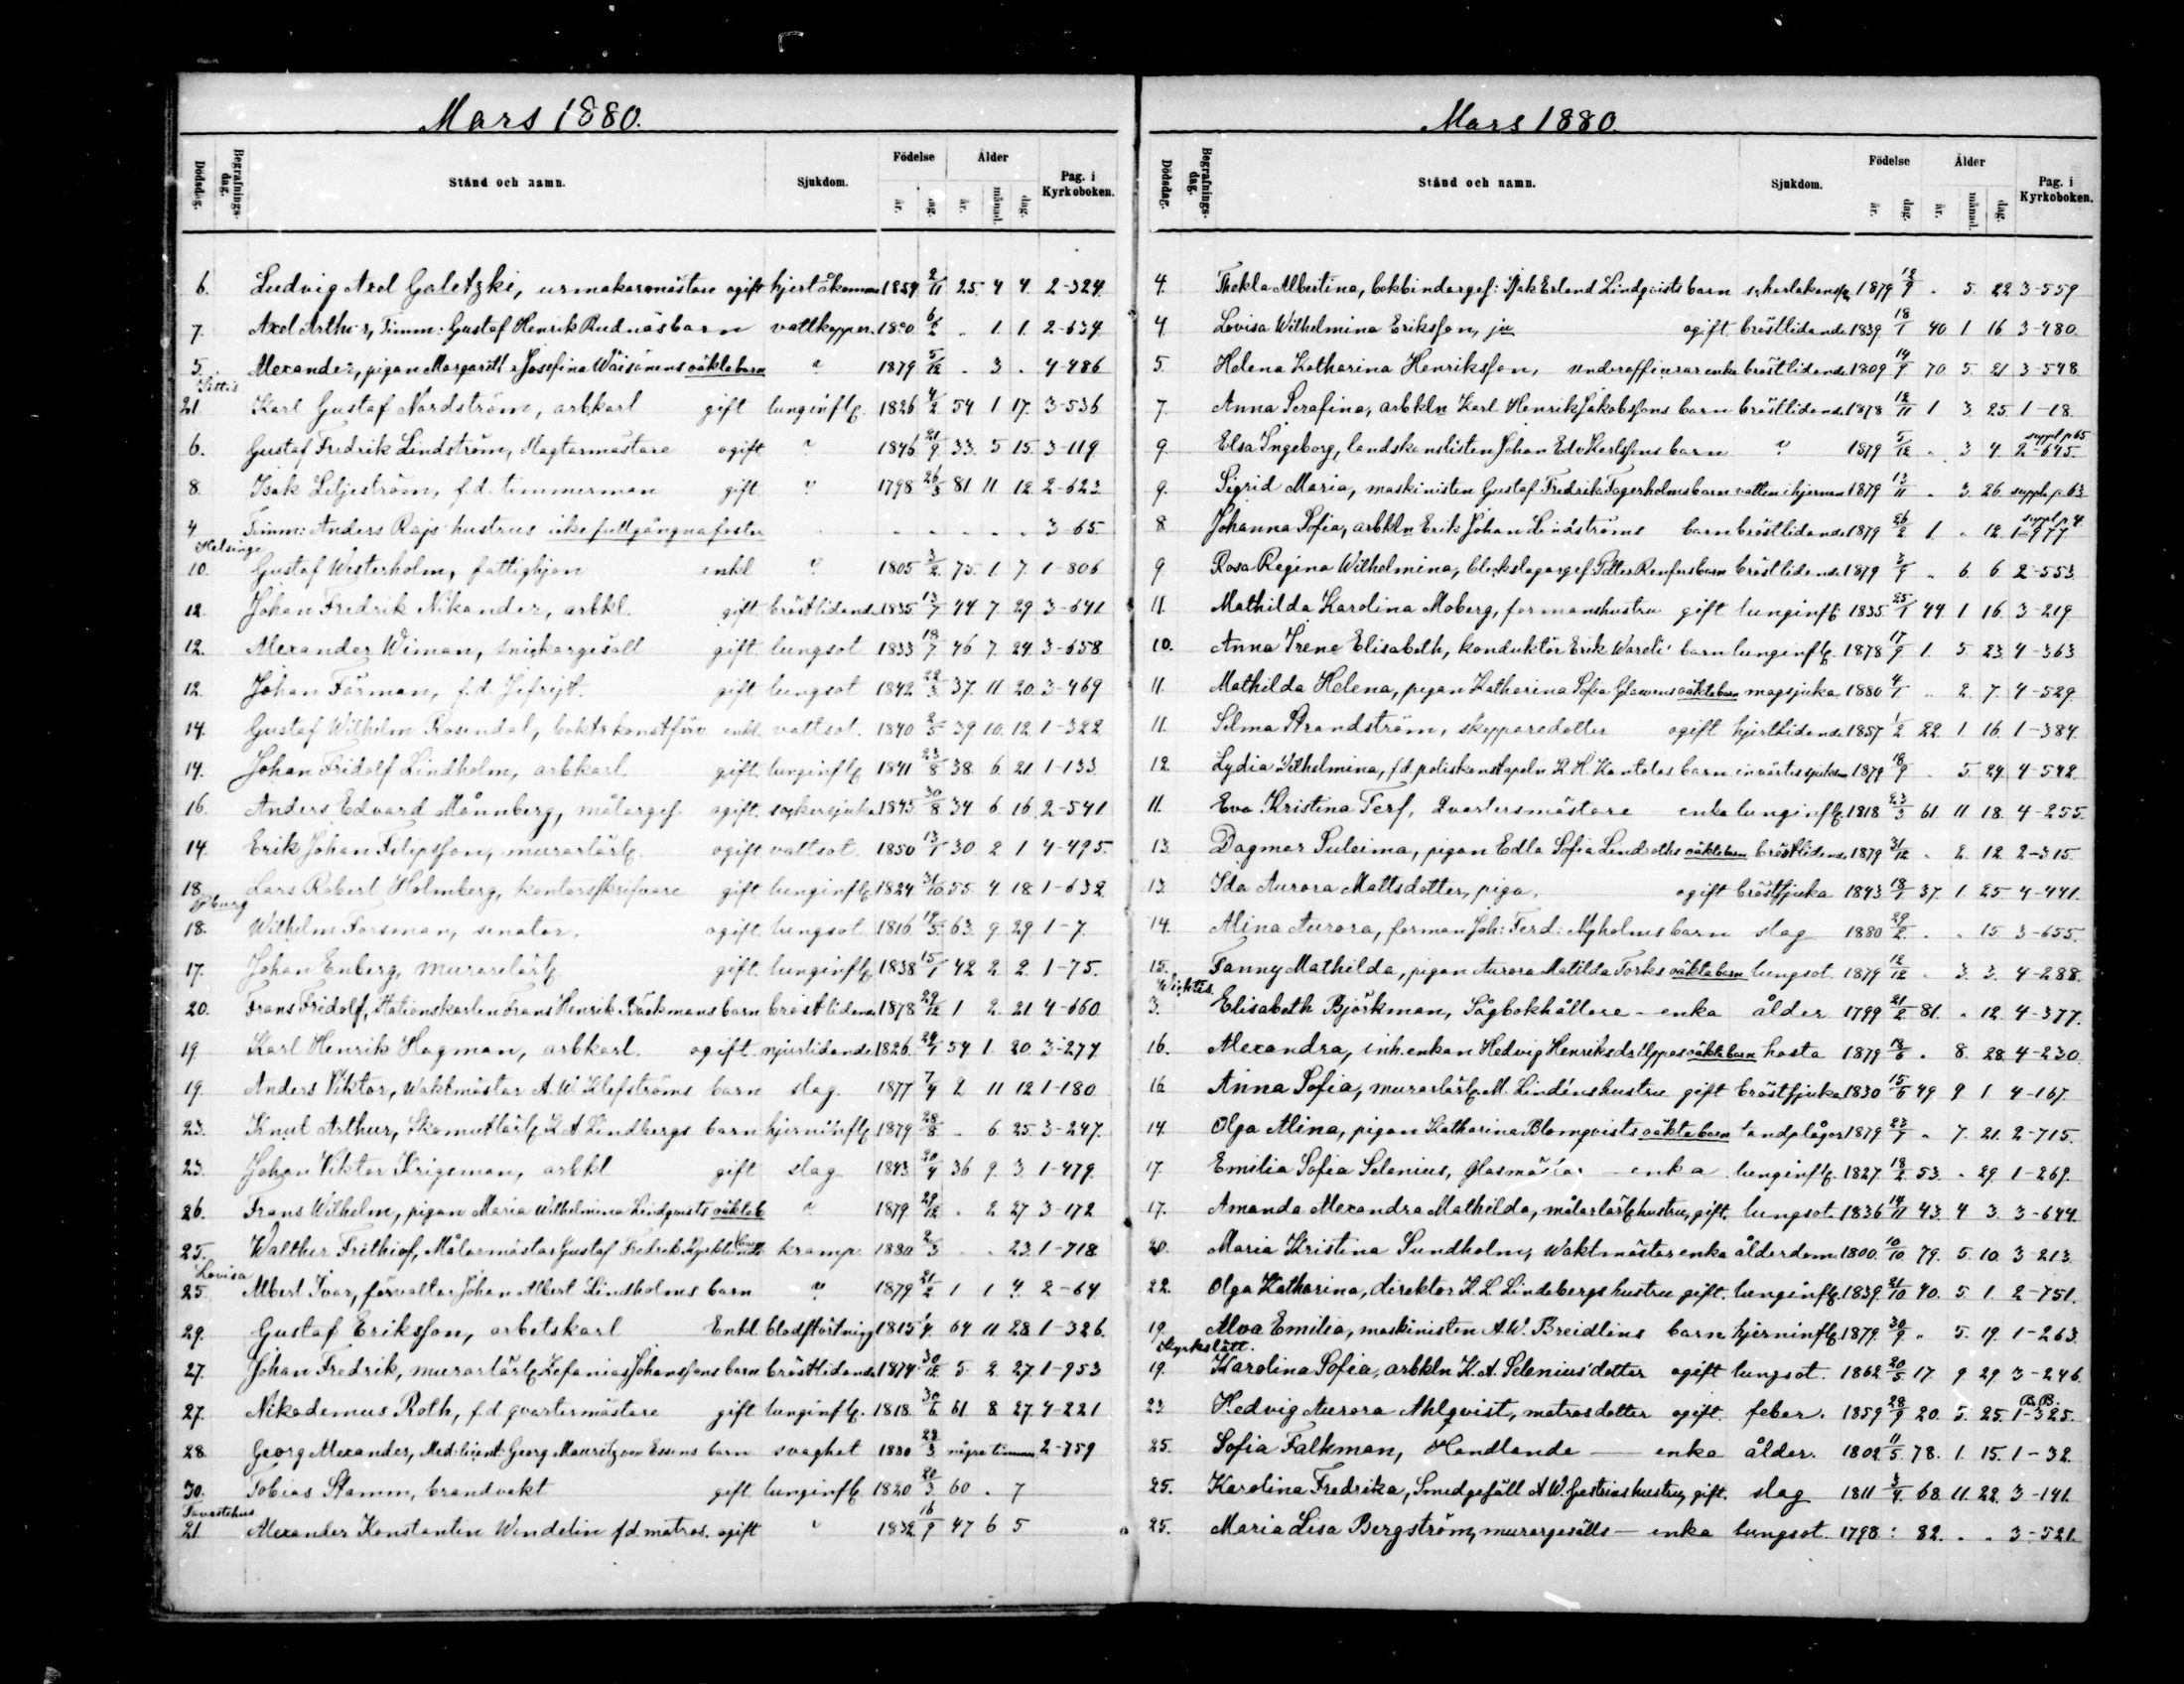 Mars 1880.
Dödsdag. Begrafningsdag. Stånd och namn. Sjukdom. Födelse år. dag. Ålder år. månad. dag. Pag. i Kyrkoboken.
6. Ludvig Axel Galetzki, urmakaremästare ogift hjertåkomma 1854 2/11 25. 4 4. 2-324.
7. Axel Arthur, Timm: Gustaf Henrik Rudnäs barn vattkoppor. 1880 6/2 . 1. 1. 2-634.
5. Alexander, pigan Margareth Josefina Wäisänens oäkta barn " 1879 5/12 . 3 . 4-486
Sittis
21. Karl Gustaf Nordström, arbkarl gift lunginflg. 1826 4/2 54 1 17. 3-536
6. Gustaf Fredrik Lindström, Slagtarmästare ogift " 1846 21/9 33. 5 15. 3-119.
8. Isak Liljeström, f.d. timmerman gift " 1798 26/3 81. 11 12. 2-623.
4 Timm: Anders Rajs hustrus icke fullgångna foster 3-65.
Helsinge
10. Gustaf Westerholm, fattighjon enkl " 1805 3/2 75. 1. 7. 1-806
12. Johan Fredrik Nikander, arbkl. gift bröstlidande 1835 13/7 44 7 29. 3-641
12. Alexander Wiman, snickargesäll gift lungsot 1833 18/7 46 7. 24. 3-658
12. Johan Färman, f.d. Jefrejt. gift lungsot 1842 22/3 37. 11 20. 3-469
14. Gustaf Wilhelm Rosendal, enkl. vattsot. 1840 2/5 39. 10. 12. 1-322
14. Johan Fridolf Lindholm, arbkarl. gift. lunginflg 1841 23/8 38. 6. 21 1-133
16. Anders Edvard Månnberg, målargef. ogift. sockersjuka 1845 30/8 34 6 16. 2-541
14. Erik Johan Filipsson, murarlärlg. ogift vattsot 1850 13/1 30 2 1 4-495.
18. Lars Robert Holmberg, kontorsskrifvare gift lunginflg. 1824 31/10 55. 4. 18. 1-632
P:burg
18. Wilhelm Forsman, senator. ogift. lungsot 1816 19/5 63. 9. 29. 1-7.
17. Johan Enberg, murarelärlg gift. lunginflg. 1838 15/1 42 2. 2. 1-75.
20. Frans Fridolf, Stationskarlen Frans Henrik Bäckmans barn bröstlidande 1878 29/12 1 2. 21 4-660
19 Karl Henrik Hagman, arbkarl. ogift. njurlidande 1826. 29/1 54 1. 20. 3-277
19. Anders Viktor, Waktmästar A. W. Klefströms barn slag. 1877 7/4 2 11 12 1-180
23. Knut Arthur, K. A. Lindbergs barn hjerninflg. 1879 28/8 . 6 25. 3-247.
23. Johan Viktor Krigsman, arbkl gift slag 1843. 20/4 36 9. 3. 1-479.
26. Frans Wilhelm, pigan Maria Wilhelmina Lindqvists oäkta b " 1879 29/12 . 2 27 3-172
25. Walther Frithiof, Målarmästar Gustaf Fredrik barn kramp. 1880 2/3 . . 23. 1-718
Lovisa
25. Albert Ivar, förvaltar Johan Albert Lindholms barn " 1879 21/2 1 1 4. 2-64
29. Gustaf Eriksson, arbetskarl Enkl. blodstörtning 1815 1/4. 64 11 28 1-326.
27. Johan Fredrik, murarlärlg. Zefanias Johanssons barn bröstlidande 1874. 30/12 5 2. 27. 1-953
27. Nikodemus Roth, f.d. qvartermästare gift lunginflg. 1818. 30/6 61 8. 27. 4-221
28. Georg Alexander, Med-licent Georg Mauritz von Essens barn svaghet 1880 28/3 några timmar 2-759
30. Tobias Stamm, brandvakt gift. lunginflg. 1820 20/3 60 . 7
Tavastehus
21. Alexander Konstantin Wendelin f.d. matros. ogift " 1832 16/9 47 6 5
Mars 1880.
Dödsdag. Begrafningsdag. Stånd och namn. Sjukdom. Födelse år. dag. Ålder år. månad. dag. Pag. i Kyrkoboken.
4. Thekla Albertina, bokbindargef: Isak Erland Lindqvists barn 1879 12/9 . 5. 22 3-559
4. Lovisa Wilhelmina Eriksson, ogift. bröstlidande 1839. 18/1 40 1 16 3-480.
5. Helena Katharina Henriksson, underofficerar enka bröstlidande 1809 14/9 70 5. 21 3-548.
7. Anna Serafina, arbkln Karl Henrik Jakobssons barn bröstlidande 1878 12/11 1 3. 25. 1-18.
9. Elsa Ingeborg, landskanslisten Johan Edv Karlssons barn " 1879 5/12 . 3 4. suppl p 65 2-645.
9. Sigrid Maria, maskinisten Gustaf Fredrik Fagerholms barn vatten i hjernan 1879 13/11 . 3. 26. suppl. p. 63
8 Johanna Sofia, arbkln Erik Johan Lindströms barn bröstlidande 1879 26/2 1. . 12. suppl p 4. 1-977
9. Rosa Regina Wilhelmina, bleckslagargef. barn bröstlidande 1879 3/9 . 6. 6. 2-553
11. Mathilda Karolina Moberg, formanshustru gift lunginflg. 1835. 25/1 44. 1 16 3-219
10. Anna Irene Elisabeth, konduktör Erik Wareli' barn lunginflg. 1878 17/9 1. 5. 23. 4-363
11. Mathilda Helena, pigan Katharina Sofia oäkta barn magsjuka 1880 4/1 . 2. 7. 4-529.
11. Selma Strandström, skepparedotter ogift hjertlidande 1857 1/2 22. 1 16. 1-384.
12. Lydia Wilhelmina, f.d poliskonstapeln K. H. Kantolas barn invärtes sjukdom 1879 18/9 . 5. 24 4-542.
11. Eva Kristina Terf, Qvartersmästare enka lunginflg. 1818 23/3 61 11 18. 4-255.
13. Dagmar Suleima, pigan Edla Sofia oäkta barn bröstlidande 1879 31/12 . 2. 12. 2-315.
13. Ida Aurora Mattsdotter, piga. ogift bröstsjuka 1843 18/1 37. 1. 25 4-441.
14. Alina Aurora, forman Joh: Ferd: Nyholms barn slag 1880 29/2. . . 15 3-655.
15. Fanny Mathilda, pigan Aurora Matilda Torks oäkta barn lungsot. 1879 12/12 . 3. 3. 4-288.
Wichtis.
3. Elisabeth Björkman, Sågbokhållare - enka ålder 1799 21/2 81. . 12. 4-377.
16. Alexandra, inh. enkan Hedvig Henriksdr oäkta barn hosta 1879 18/6 . 8. 28 4-230
16 Anna Sofia, murarlärlg. M. Lindéns hustru gift bröstsjuka 1830 15/6 49 9 1. 4-167.
14. Olga Alina, pigan Katharina Blomqvists oäkta barn tandplågor 1879 23/7 . 7. 21. 2-715.
17. Emilia Sofia Selenius, Glasmästar - enka lunginflg. 1827 18/2 53. . 29. 1-269.
17. Amanda Alexandra Mathilda, målarlärlg hustru, gift. lungsot. 1836 14/11 43. 4 3. 3-644.
20. Maria Kristina Sundholm, Waktmästar enka ålderdom 1800. 10/10 79. 5. 10. 3-213.
22. Olga Katharina, direktor K. L. Lindebergs hustru gift. lunginflg. 1839. 21/10 40. 5 1. 2-751.
19. Alva Emilia, maskinisten A. W. Breidlins barn hjerninflg. 1879. 30/9 . 5. 19. 1-263.
Kyrkslätt.
19. Karolina Sofia, arbkln K. A. Selenius' dotter ogift lungsot. 1862 20/5 17. 9. 29. 3-246.
23 Hedvig Aurora Ahlqvist, matrosdotter ogift. feber. 1859 28/9 20. 5. 25. B.B. 1-325.
25. Sofia Falkman, Handlande - enka ålder. 1802 11/5 78. 1. 15. 1-32.
25. Karolina Fredrika, Smedgesäll A. W. hustru, gift. slag 1811 3/4. 68. 11. 22. 3-141.
25. Maria Lisa Bergström, murargesälls - enka lungsot. 1798 : 82. . . 3-521.